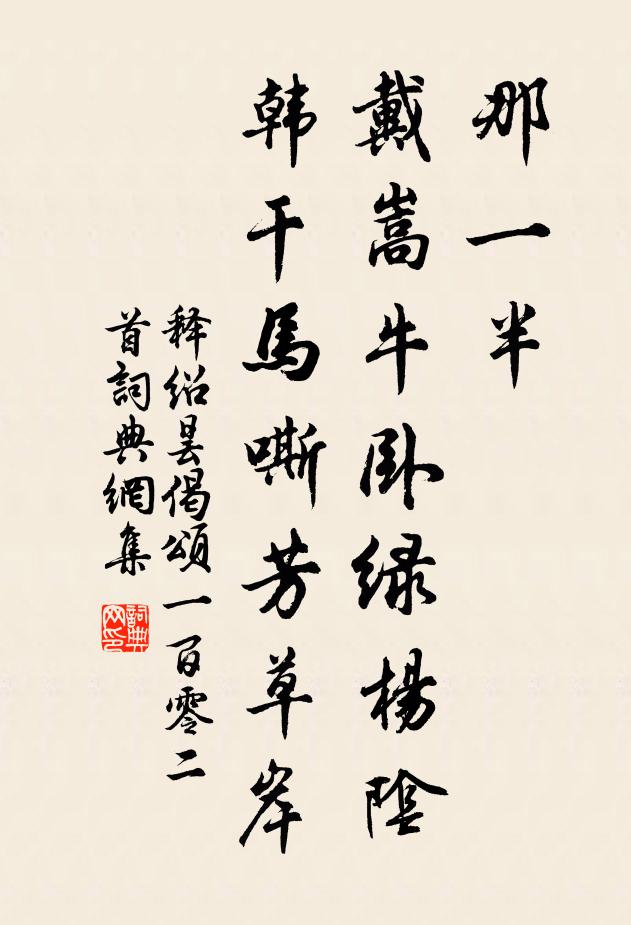 那一半
戴嵩牛卧绿楊陰
韩干馬嘶芳草岸
释绍昙偈頌一百零二
首詞典網集
詞典网印